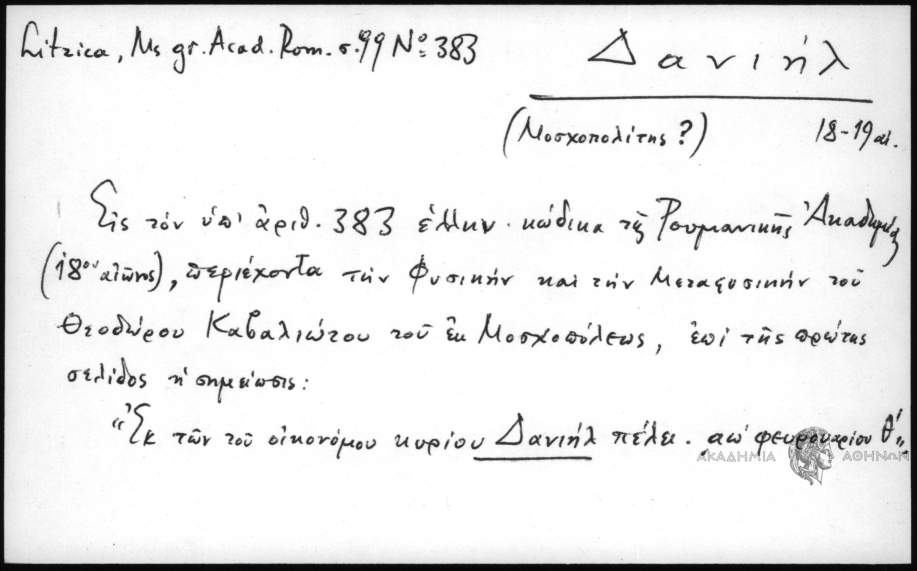 Litzica, Ms gr. Acad. Rom. σ. 99 Nº 383
Δανιήλ
(Μοσχοπολίτης ?) 18-19 αι.
Εἰς τὸν ὑπ' ἀριθ. 383 ἑλλην. κώδικα τῆς Ρουμανικῆς Ἀκαδημίας
(18ου αἰῶνος), περιέχοντα τὴν Φυσικὴν καὶ τὴν Μεταφυσικὴν τοῦ
Θεοδώρου Καβαλιώτου τοῦ ἐκ Μοσχοπόλεως, ἐπὶ τῆς πρώτης
σελίδος ἡ σημείωσις:
"Ἐκ τῶν τοῦ οἰκονόμου κυρίου Δανιὴλ πέλει. αωʹ φευρουαρίου θʹ"
ΑΚΑΔΗΜΙΑ ΑΘΗΝΩΝ